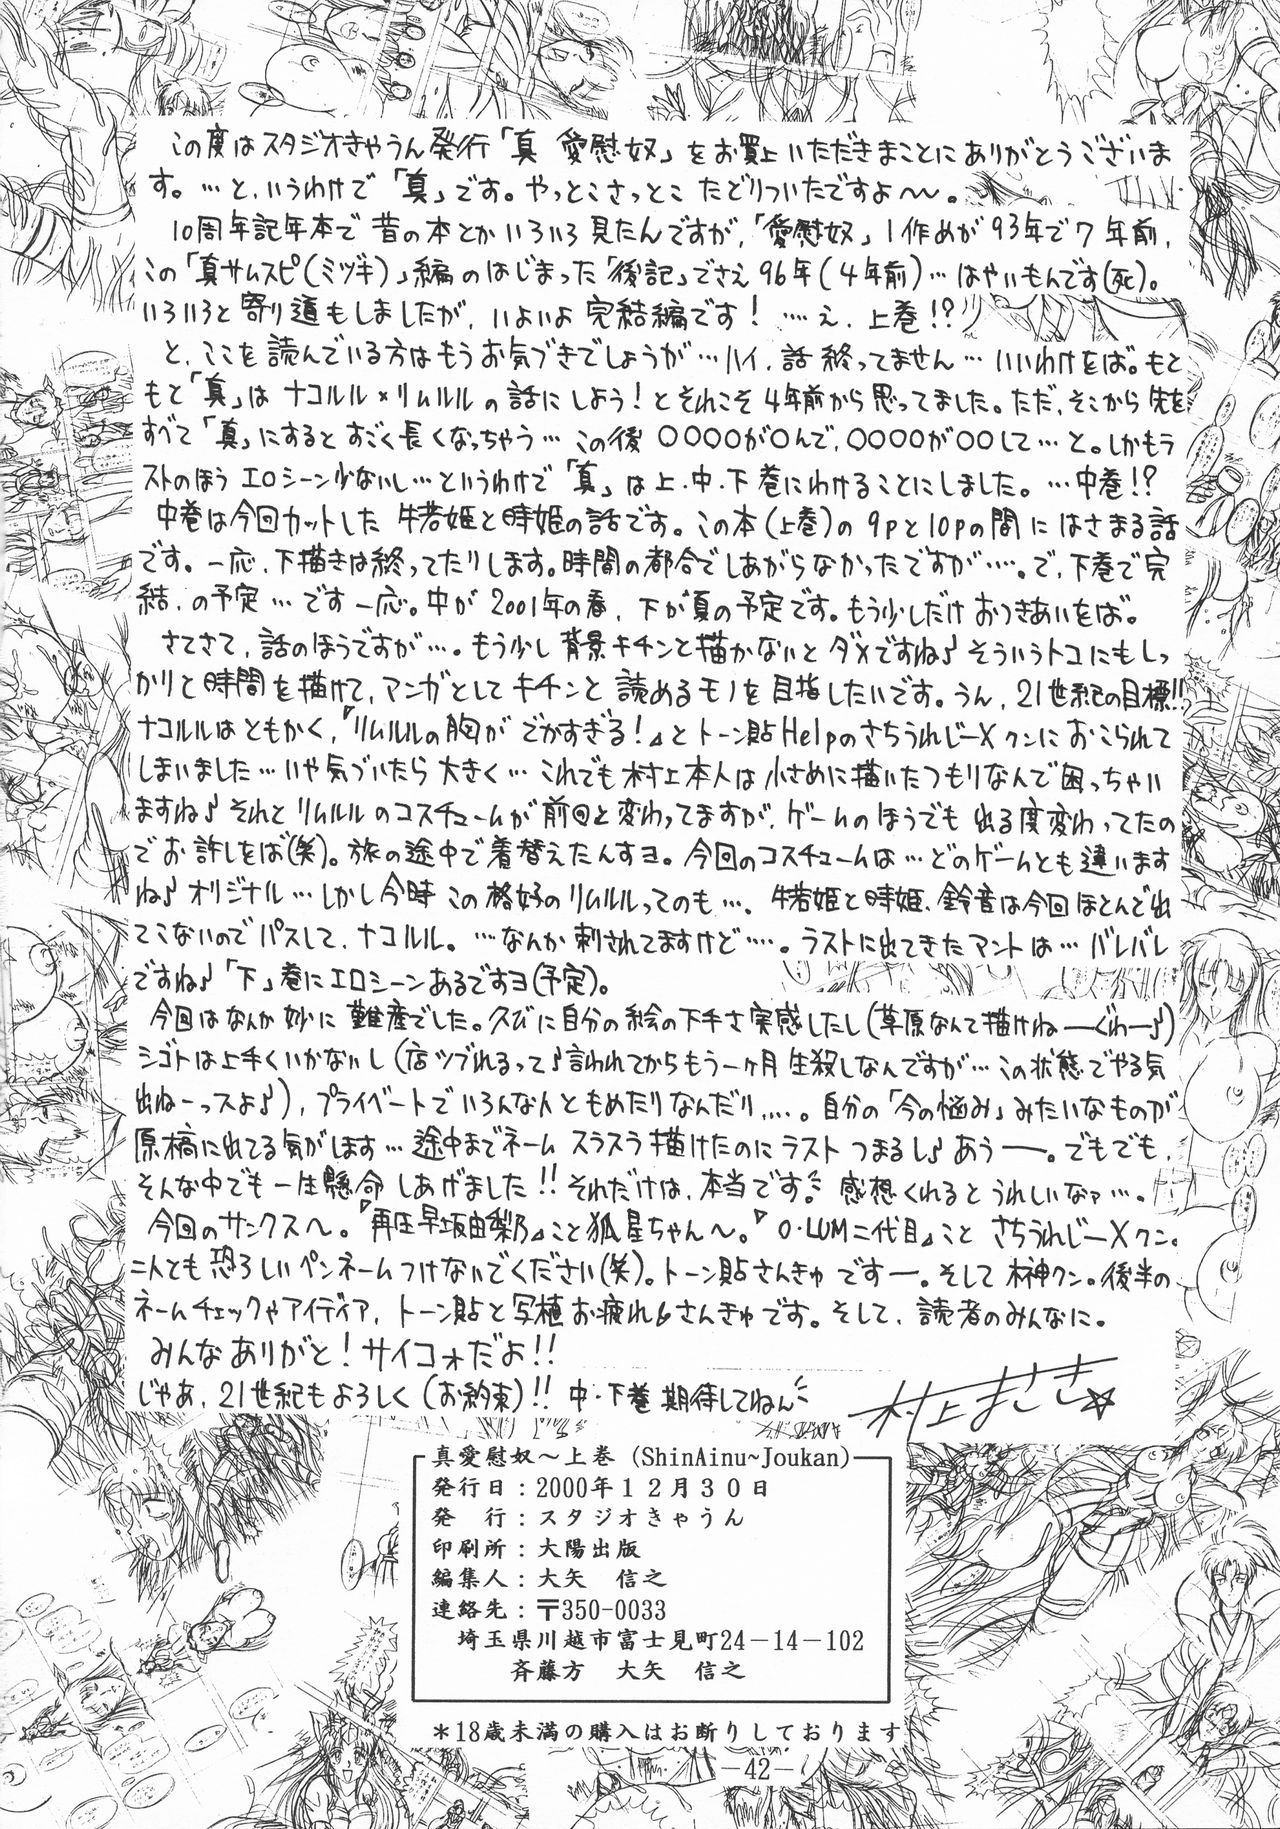 この度はスタジオきゃうん発行「真 愛慰奴」をお買上いただきまことにありがとうございま
す。…と、いうわけで「真」です。やっとこさっとこ たどりついたですよ〜〜。
10周年記年本で昔の本とかいろいろ見たんですが、「愛慰奴」1作めが93年で7年前、
この「真サムスピ(ミヅキ)」編のはじまった「後記」でさえ96年(4年前)…はやいもんです(死)。
いろいろと寄り道もしましたが、いよいよ完結編です! …え、上巻!?
と、ここを読んでいる方はもうお気づきでしょうが…ハイ、話終ってません…いいわけをば。もと
もと「真」はナコルル×リムルルの話にしよう!とそれこそ4年前から思ってました。ただ、そこから先を
すべて「真」にするとすごく長くなっちゃう…この後○○○○が○んで、○○○○が○○して…と。しかもラ
ストのほうエロシーン少ないし…というわけで「真」は上・中・下巻にわけることにしました。…中巻!?
中巻は今回カットした牛若姫と時姫の話です。この本(上巻)の9pと10pの間にはさまる話
です。一応、下描きは終ってたりします。時間の都合でしあがらなかったですが‥‥。で、下巻で完
結、の予定…です一応。中が2001年の春、下が夏の予定です。もう少しだけおつきあいをば。
さてさて、話のほうですが…。もう少し背景キチンと描かないとダメですね♪そういうトコにもしっ
かりと時間を掛けて、マンガとしてキチンと読めるモノを目指したいです。うん、21世紀の目標!!
ナコルルはともかく、『リムルルの胸がでかすぎる!』とトーン貼HelpのさちうれじーXクンにおこられて
しまいました…いや気づいたら大きく…これでも村上本人は小さめに描いたつもりなんで困っちゃい
ますね♪それとリムルルのコスチュームが前回と変わってますが、ゲームのほうでも出る度変わってたの
でお許しをば(笑)。旅の途中で着替えたんすヨ。今回のコスチュームは…どのゲームとも違います
ね♪オリジナル…しかし今時この格好のリムルルってのも…。牛若姫と時姫、鈴音は今回ほとんで出
てこないのでパスして、ナコルル。…なんか刺されてますけど‥‥。ラストに出てきたマントは…バレバレ
ですね♪「下」巻にエロシーンあるですヨ(予定)。
今回はなんか妙に難産でした。久びに自分の絵の下手さ実感したし(草原なんて描けねーぐわー♪)
シゴトは上手くいかないし(店ツブれるって♪言われてからもう一ヶ月生殺しなんですが…この状態でやる気
出ねーっスよ♪)、プライベートでいろんな人ともめたりなんだり‥‥。自分の「今の悩み」みたいなものが
原稿に出てる気がします…途中までネームスラスラ描けたのにラストつまるし♪あうー。でもでも、
そんな中でも一生懸命しあげました!!それだけは、本当です。感想くれるとうれしいなァ…。
今回のサンクスへ。『再圧早坂由梨乃』こと狐星ちゃん〜。『O・LUM二代目』ことさちうれじーXクン。
二人とも恐ろしいペンネームつけないでください(笑)。トーン貼さんきゅですー。そして榊クン。後半の
ネームチェックやアイディア、トーン貼と写植お疲れ&さんきゅです。そして、読者のみんなに。
みんなありがと!サイコォだよ!!
じゃあ、21世紀もよろしく(お約束)!!中・下巻期待してねん
村上まさき☆
真愛慰奴〜上巻(ShinAinu~Joukan)
発行日：2000年12月30日
発 行：スタジオきゃうん
印刷所：大陽出版
編集人：大矢 信之
連絡先：〒350-0033
埼玉県川越市富士見町24－14－102
斉藤方 大矢 信之
＊18歳未満の購入はお断りしております
－42－